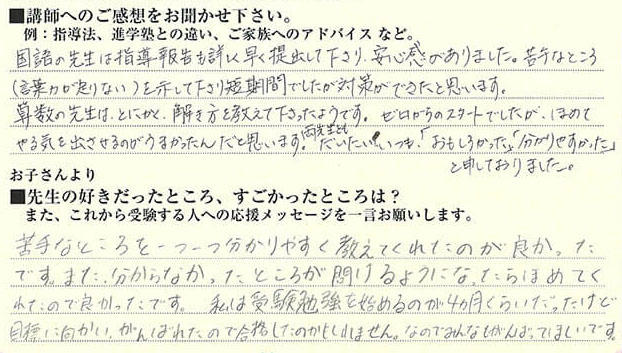 ■講師へのご感想をお聞かせ下さい。
例：指導法、進学塾との違い、ご家族へのアドバイス など。
国語の先生は指導報告も詳しく早く提出して下さり、安心感がありました。苦手なところ
(言葉力が足りない)を示して下さり短期間でしたが対策ができたと思います。
算数の先生は、とにかく、解き方を教えて下さったようです。ゼロからのスタートでしたが、ほめて
やる気を出させるのがうまかったんだと思います。両先生ともだいたいいつも、「おもしろかった」「分かりやすかった」
と申しておりました。
お子さんより
■先生の好きだったところ、すごかったところは？
また、これから受験する人への応援メッセージを一言お願いします。
苦手なところを一つ一つ分かりやすく教えてくれたのが良かった
です。また、分からなかったところが聞けるようになったらほめてく
れたので良かったです。私は受験勉強を始めるのが4カ月くらいだったけど
目標に向かい、がんばれたので合格したのかもしれません。なのでみんなもがんばってほしいです。